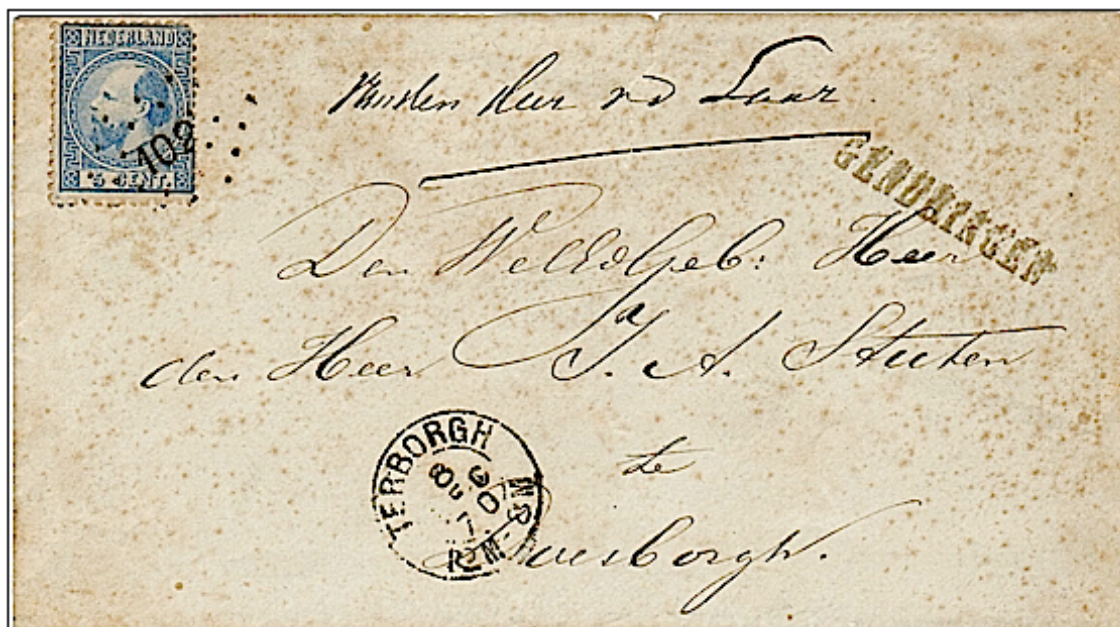 NEDERLAND
5 CENT.
102
den Heer vd Laar
GENDRINGEN
Den WelEdGeb: Heer
den Heer J. A. Stuten
te
Doesborgh.
TERBORGH
8